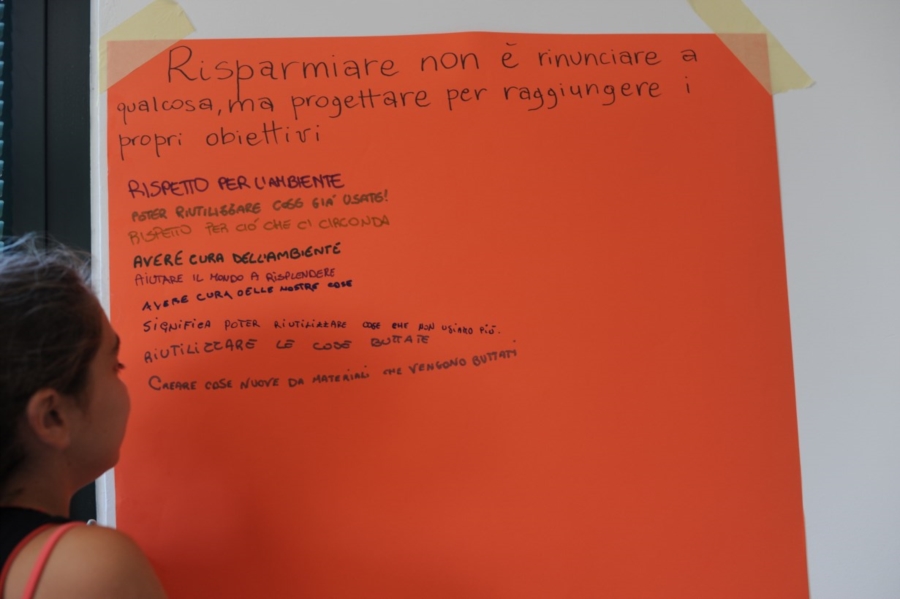 Risparmiare non è rinunciare a
qualcosa, ma progettare per raggiungere i
propri obiettivi
RISPETTO PER L'AMBIENTE
POTER RIUTILIZZARE COSE GIÀ USATE!
RISPETTO PER CIÒ CHE CI CIRCONDA
AVERE CURA DELL'AMBIENTE
AIUTARE IL MONDO A RISPLENDERE
AVERE CURA DELLE NOSTRE COSE
SIGNIFICA POTER RIUTILIZZARE COSE CHE NON USIAMO PIÙ.
RIUTILIZZARE LE COSE BUTTATE
CREARE COSE NUOVE DA MATERIALI CHE VENGONO BUTTATI